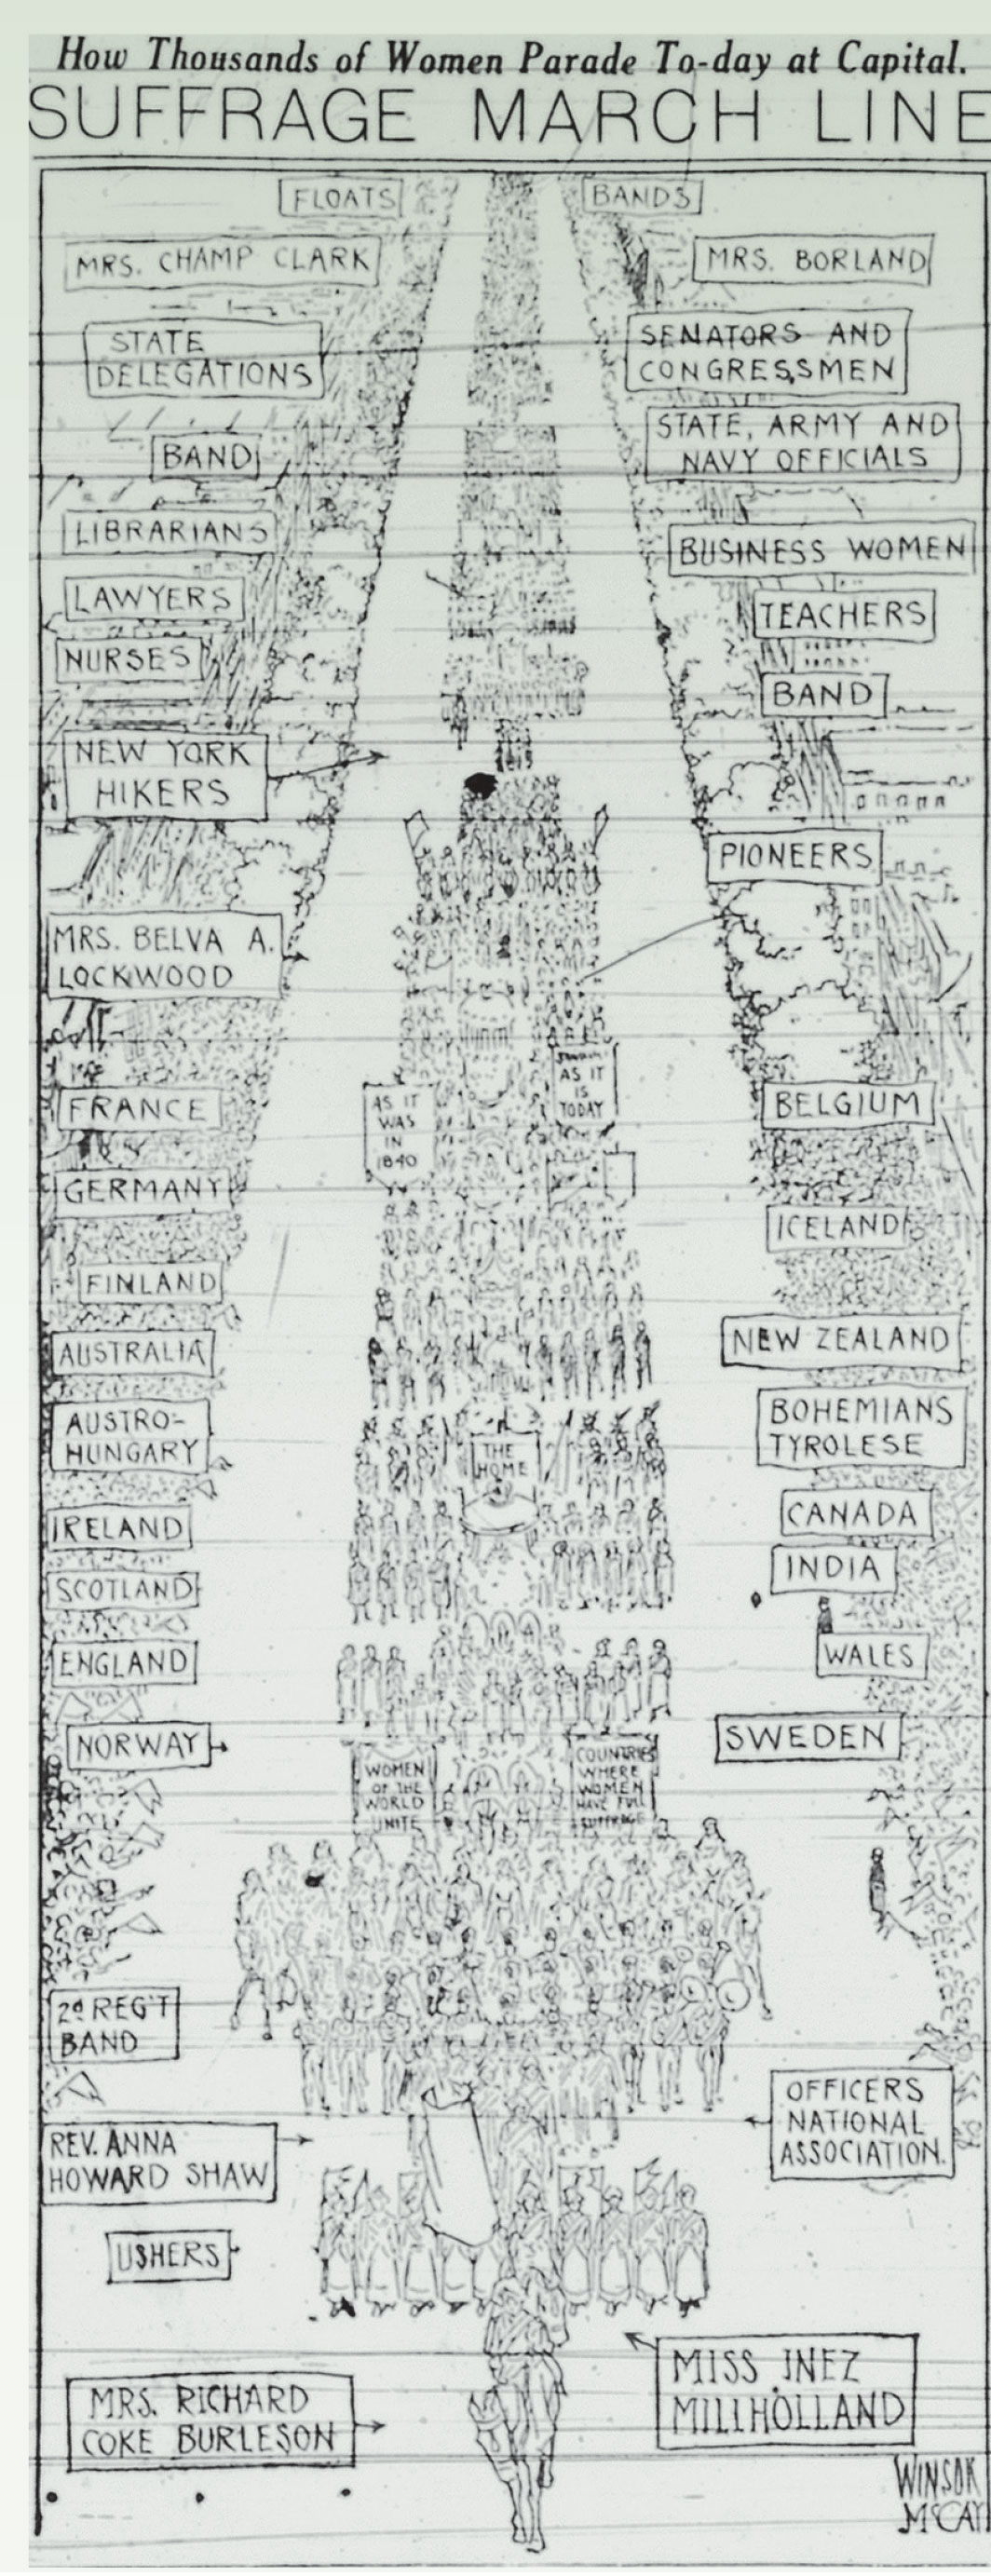 How Thousands of Women Parade To-day at Capital.
SUFFRAGE MARCH LINE
FLOATS
BANDS
MRS. CHAMP CLARK
MRS. BORLAND
STATE
DELEGATIONS
SENATORS AND
CONGRESSMEN
STATE, ARMY AND
NAVY OFFICIALS
BAND
LIBRARIANS
BUSINESS WOMEN
LAWYERS
TEACHERS
NURSES
BAND
NEW YORK
HIKERS
PIONEERS
MRS. BELVA A.
LOCKWOOD
AS IT
IS
TODAY
AS IT
WAS
IN
1840
FRANCE
BELGIUM
GERMANY
ICELAND
FINLAND
NEW ZEALAND
AUSTRALIA
AUSTRO-
HUNGARY
BOHEMIANS
TYROLESE
THE
HOME
IRELAND
CANADA
SCOTLAND
INDIA
ENGLAND
WALES
NORWAY
SWEDEN
WOMEN
OF THE
WORLD
UNITE
COUNTRIES
WHERE
WOMEN
HAVE FULL
SUFFRAGE
2d REG'T
BAND
OFFICERS
NATIONAL
ASSOCIATION.
REV. ANNA
HOWARD SHAW
USHERS
MISS INEZ
MILLHOLLAND
MRS. RICHARD
COKE BURLESON
WINSOR
McCAY